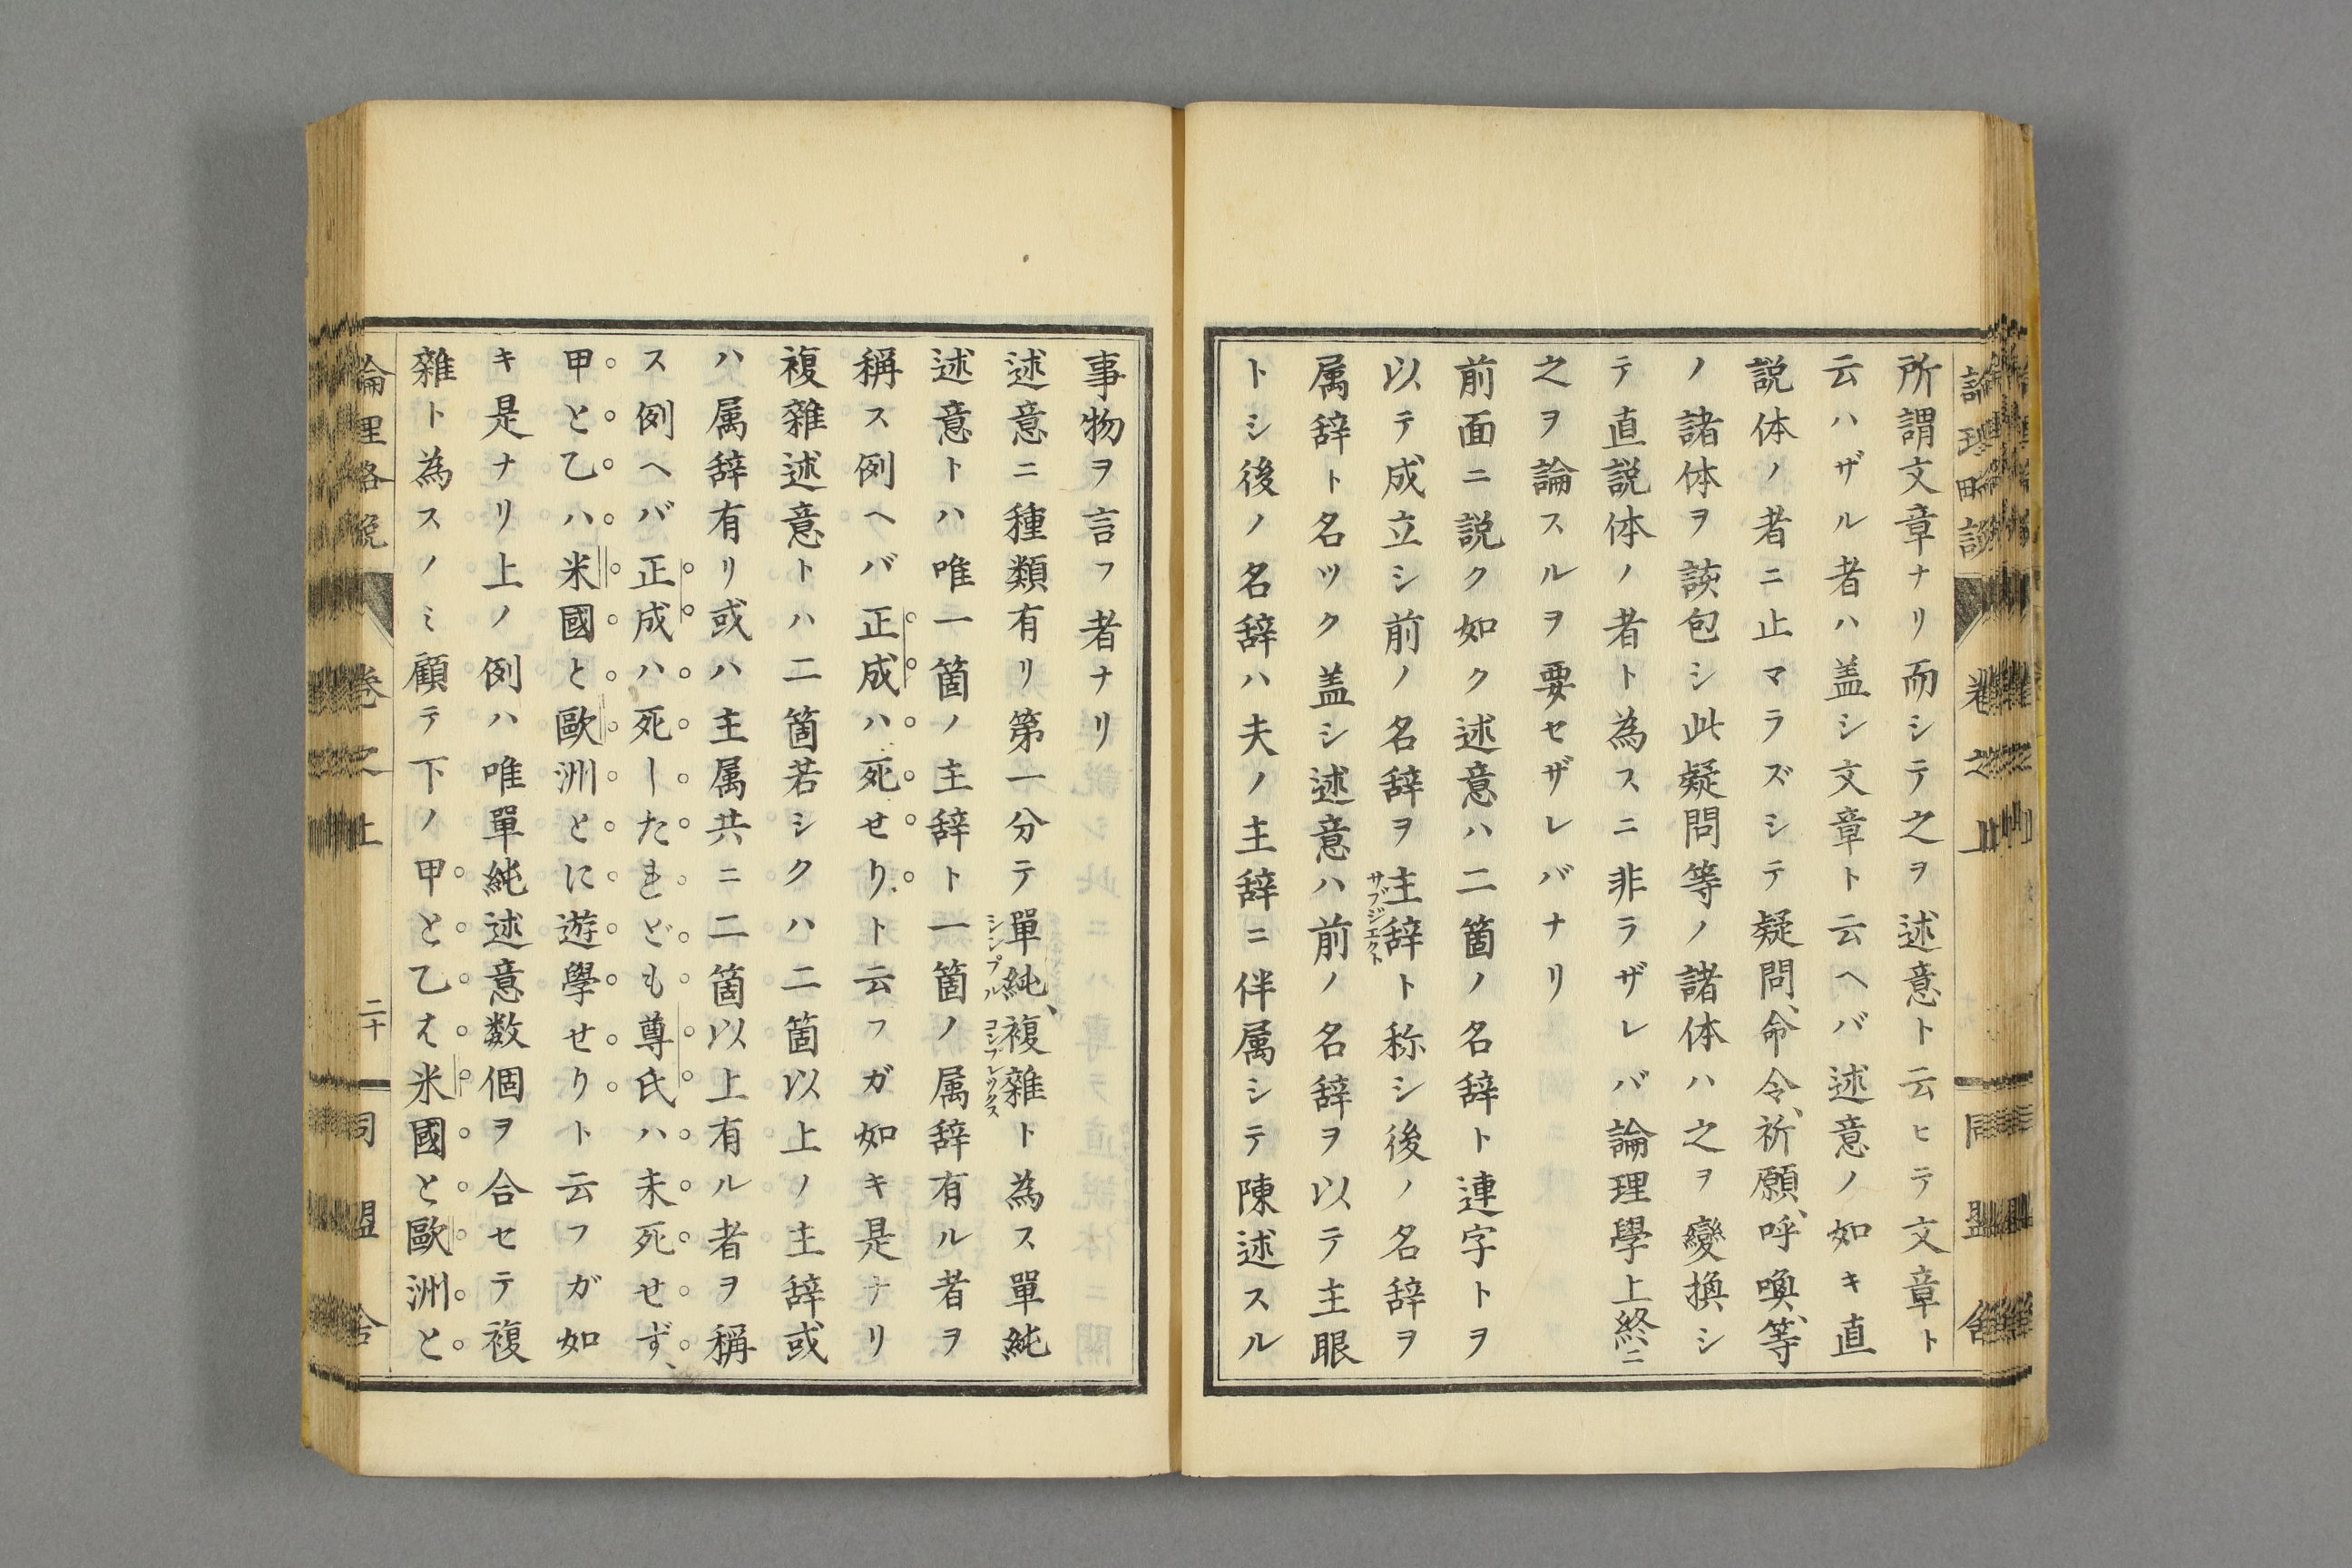 所謂文章ナリ而シテ之ヲ述意ト云ヒテ文章ト
云ハザル者ハ盖シ文章ト云ヘバ述意ノ如キ直
説体ノ者ニ止マラズシテ疑問、命令、祈願、呼喚、等
ノ諸体ヲ該包シ此疑問等ノ諸体ハ之ヲ變換シ
テ直説体ノ者ト為スニ非ラザレバ論理學上終ニ
之ヲ論スルヲ要セザレバナリ
前面ニ説ク如ク述意ハ二箇ノ名辞ト連字トヲ
以テ成立シ前ノ名辞ヲ主辞ト称シ後ノ名辞ヲ
サブジエクト
属辞ト名ツク盖シ述意ハ前ノ名辞ヲ以テ主眼
トシ後ノ名辞ハ夫ノ主辞ニ伴属シテ陳述スル
事物ヲ言フ者ナリ
述意ニ種類有リ第一分テ單純、複雜ト為ス單純
シンプル コンプレックス
述意トハ唯一箇ノ主辞ト一箇ノ属辞有ル者ヲ
稱ス例ヘバ正成ハ死せり、ト云フガ如キ是ナリ
複雜述意トハ二箇若シクハ二箇以上ノ主辞或
ハ属辞有リ或ハ主属共ニ二箇以上有ル者ヲ稱
ス例ヘバ正成ハ死したれども尊氏ハ未死せず、
甲と乙ハ米國と歐洲とに遊學せりト云フガ如
キ是ナリ上ノ例ハ唯單純述意数個ヲ合セテ複
雜ト為スノミ顧テ下ノ甲と乙は米國と歐洲と
論理略説 卷之上 二十 同盟舎